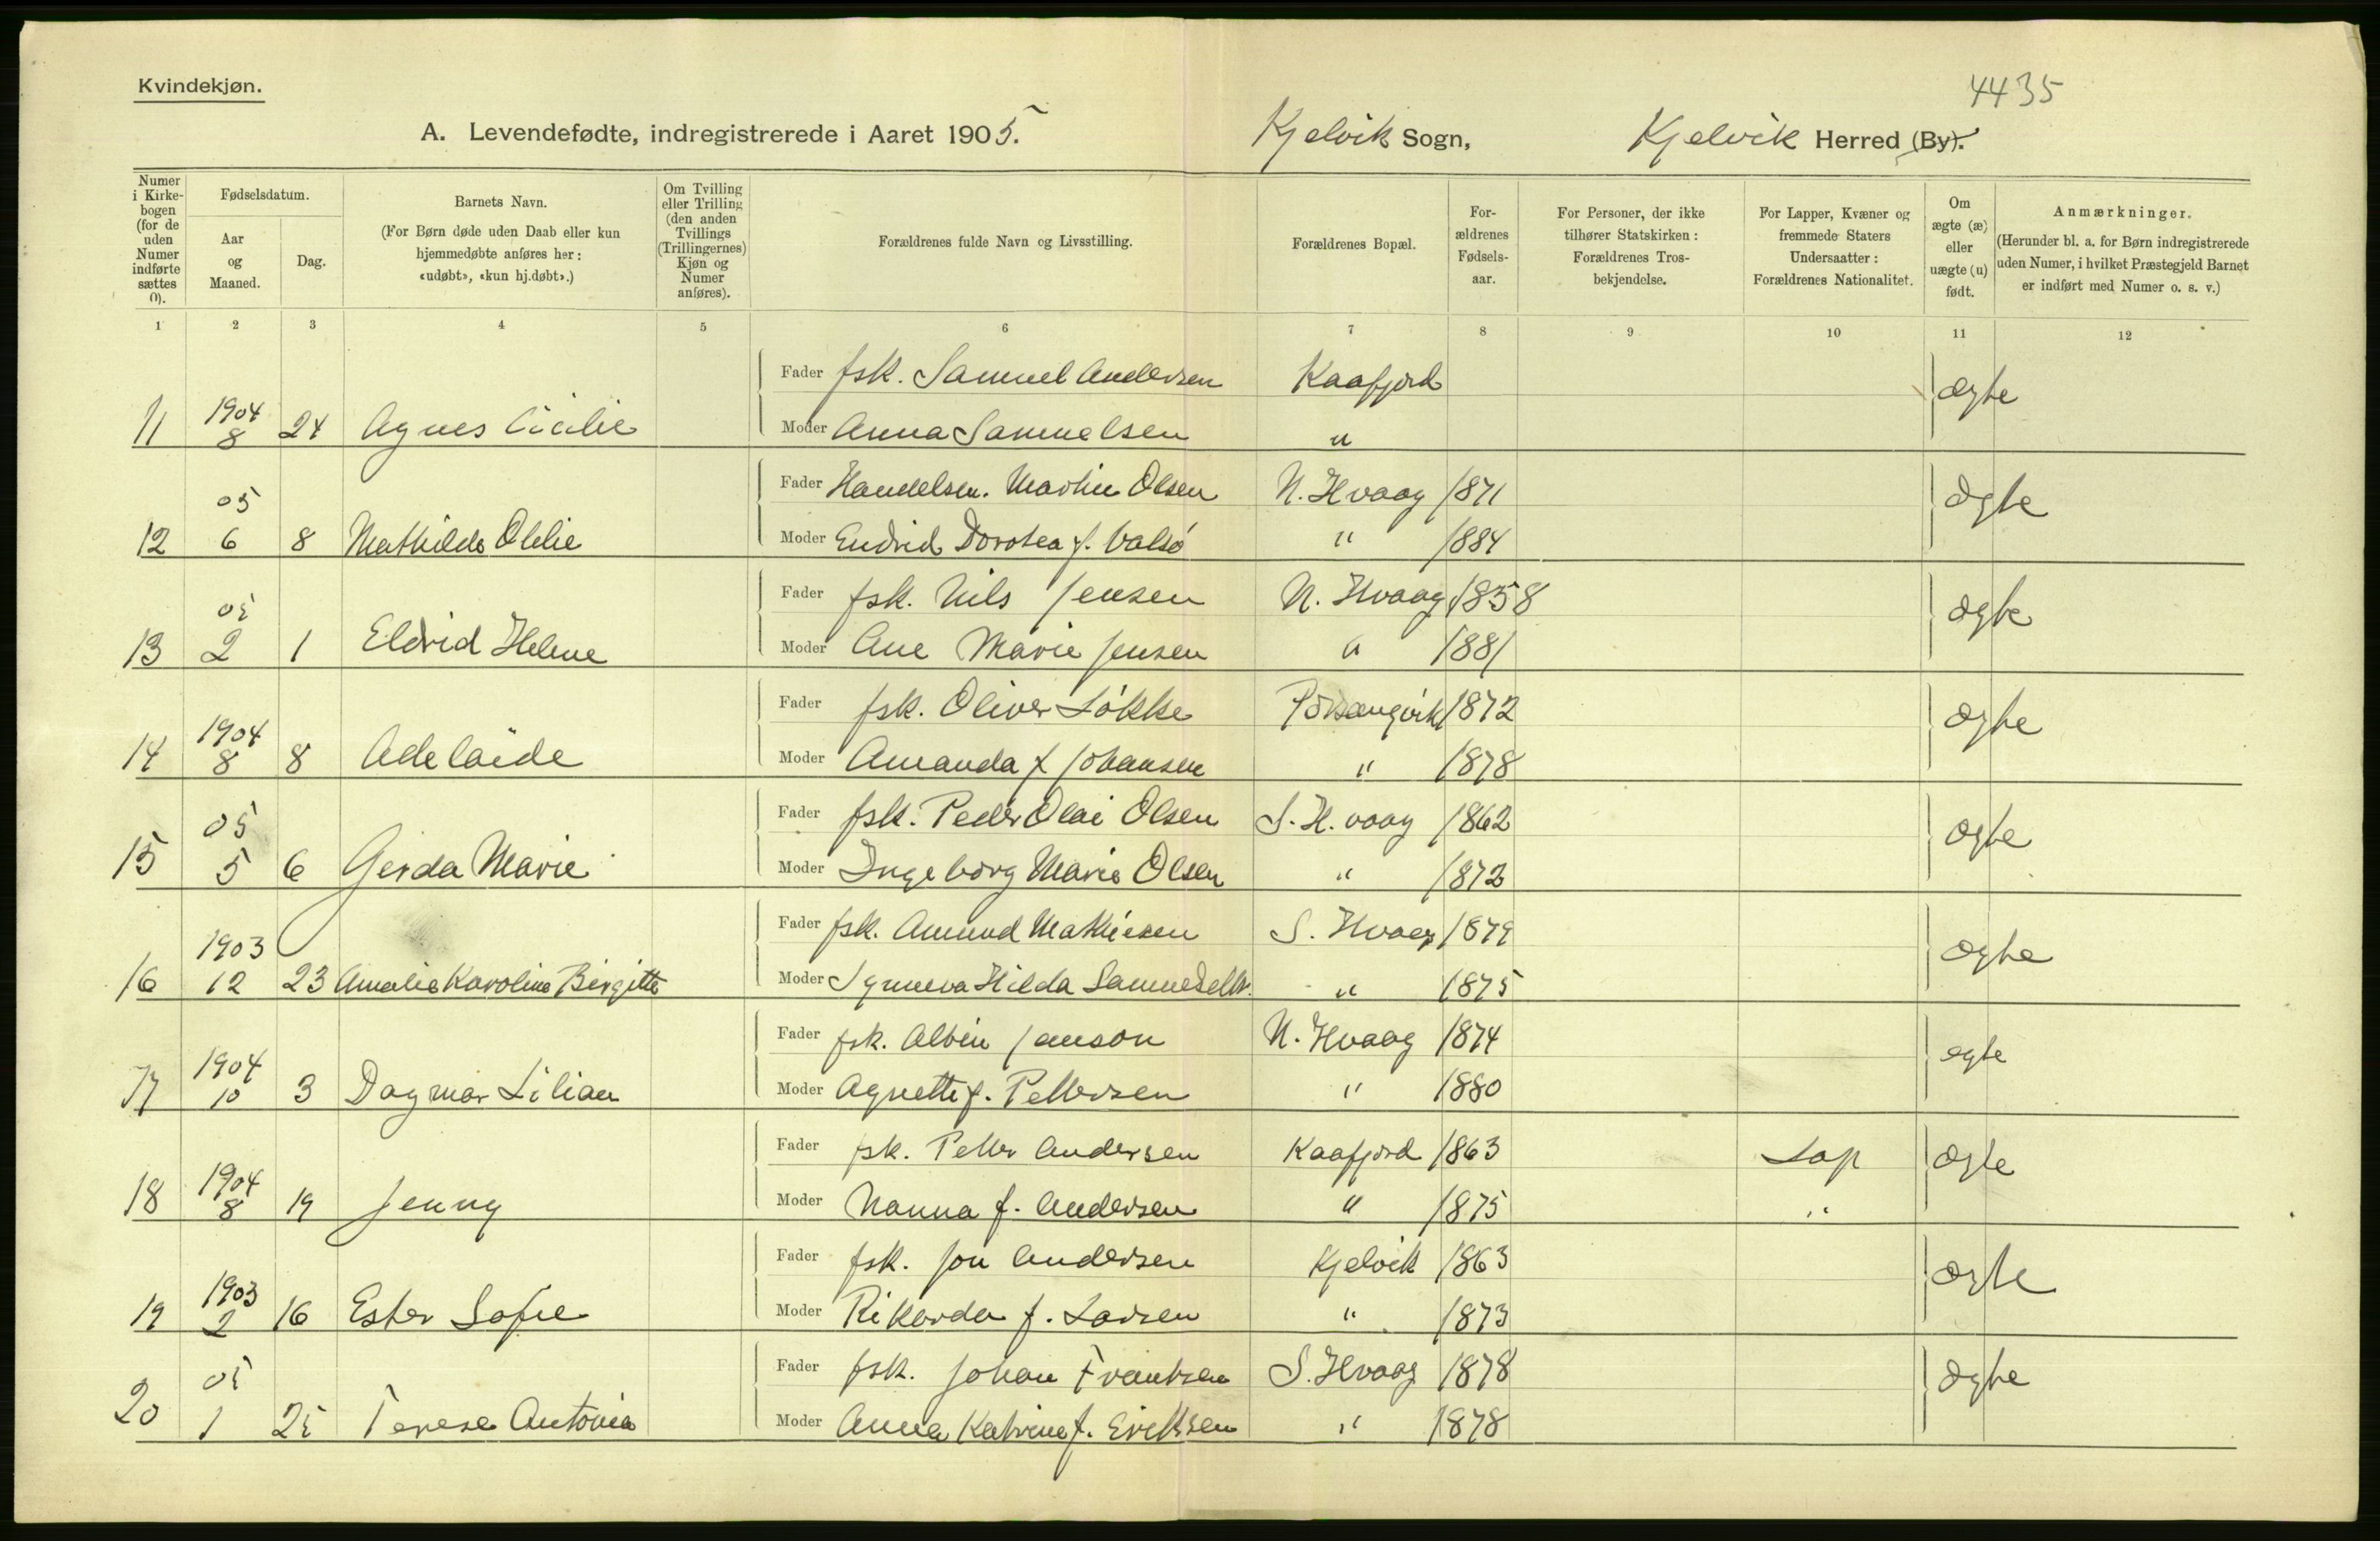 Kvindekjøn.
4435
A. Levendefødte, indregistrerede i Aaret 1905. Kjelvik Sogn, Kjelvik Herred (By).
Numer i Kirkebogen (for de uden Numer indførte sættes 0).
Fødselsdatum.
Aar og Maaned.
Dag.
Barnets Navn.
(For Børn døde uden Daab eller kun hjemmedøbte anføres her: «udøbt», «kun hj.døbt».)
Om Tvilling eller Trilling (den anden Tvillings (Trillingernes) Kjøn og Numer anføres).
Forældrenes fulde Navn og Livsstilling.
Forældrenes Bopæl.
Forældrenes Fødselsaar.
For Personer, der ikke tilhører Statskirken: Forældrenes Trosbekjendelse.
For Lapper, Kvæner og fremmede Staters Undersaatter: Forældrenes Nationalitet.
Om ægte (æ) eller uægte (u) født.
Anmærkninger.
(Herunder bl. a. for Børn indregistrerede uden Numer, i hvilket Præstegjeld Barnet er indført med Numer o. s. v.)
1 2 3 4 5 6 7 8 9 10 11 12
Fader fsk. Samuel Andersen Kaafjord ægte
11 1904 8 24 Agnes Cicilie Moder Anna Samuelsen "
Fader Handelsm. Martin Olsen N. Hvaag 1871 Ægte
12 05 6 8 Mathilde Moder Endrid Dorotea f. Valsø " 1884
Fader fsk. Nils Jensen N. Hvaag 1858 Ægte
13 05 2 1 Eldrid Helene Moder Ane Marie Jensen " 1881
Fader fsk. Oliver Løkke 1872 Ægte
14 1904 8 8 Adelaide Moder Amanda f Johansen " 1878
Fader fsk. Peder Olai Olsen S. H. vaag 1862 Ægte
15 05 5 6 Gerda Marie Moder Ingeborg Marie Olsen " 1872
Fader fsk. Amund Mathiesen S. Hvaag 1879 Ægte
16 1903 12 23 Amalie Karoline Birgitte Moder Hilda " 1875
Fader fsk. Albin Janson N. Hvaag 1874 egte
17 1904 10 3 Dagmar Lilian Moder Agnette f. Pettersen " 1880
Fader fsk. Petter Andersen Kaafjord 1863 Lap Ægte
18 1904 8 19 Jenny Moder Nanna f. Andersen " 1875 "
Fader fsk. Jon Andersen Kjelvik 1863 Ægte
19 1903 2 16 Ester Sofie Moder Rikarda f. Larsen " 1873
Fader fsk. Johan Frantsen S. Hvaag 1878 Ægte
20 05 1 25 Terese Antonia Moder Anna Katrine f. Eriksen " 1878